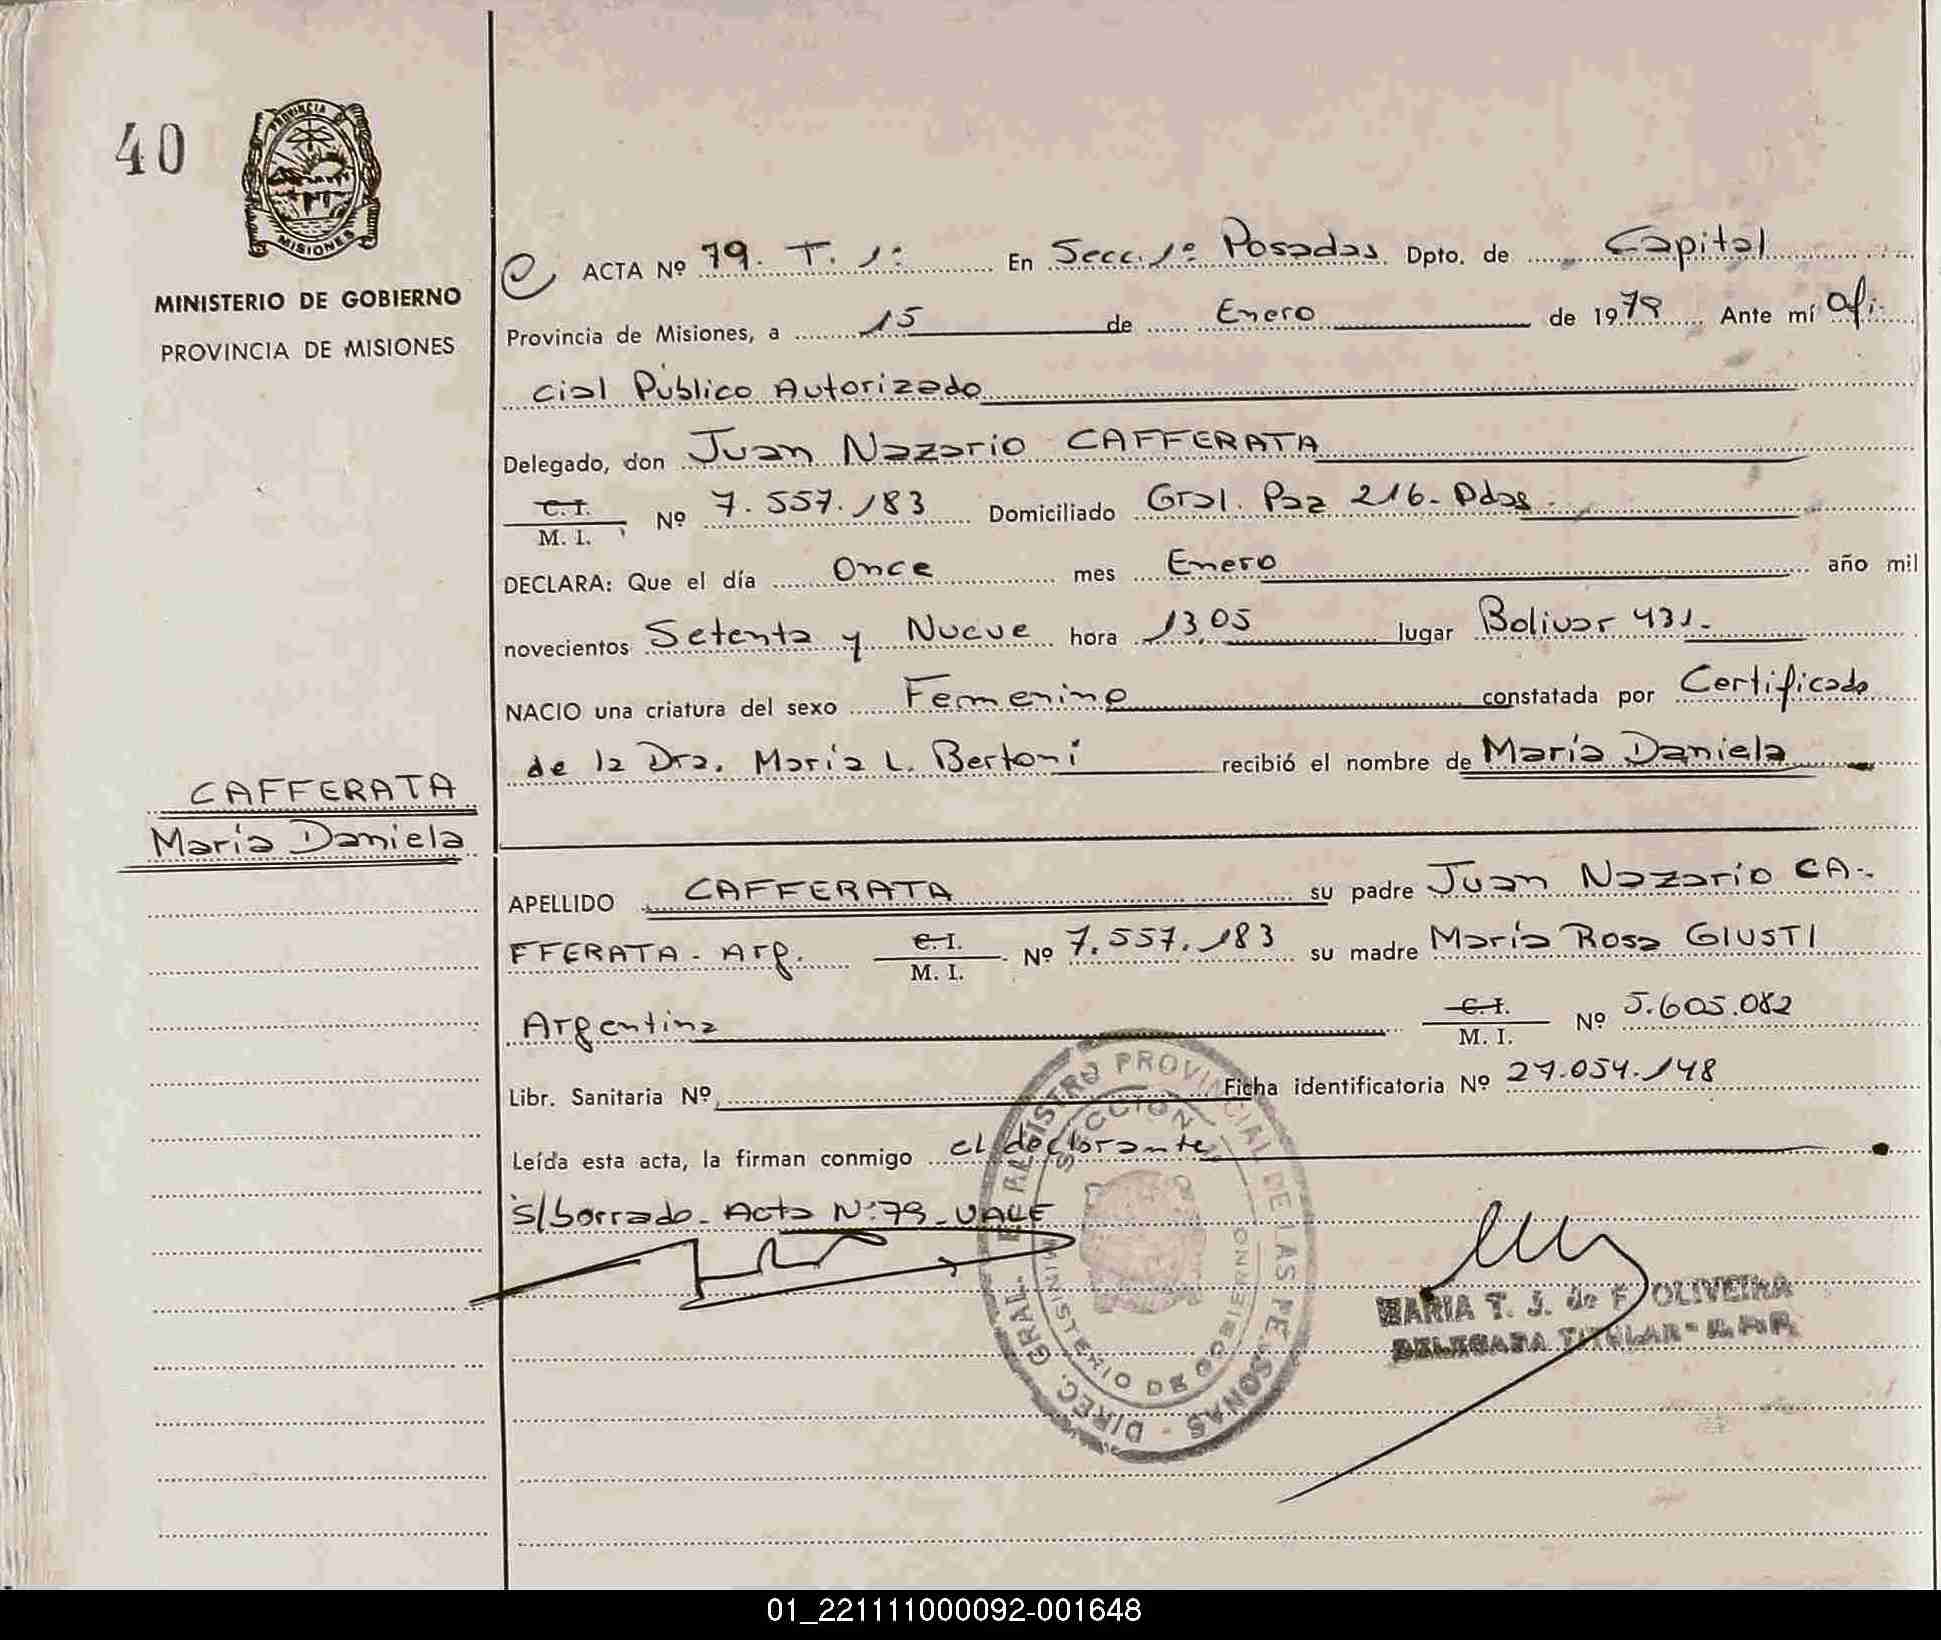 40
PROVINCIA DE
MISIONES
MINISTERIO DE GOBIERNO
PROVINCIA DE MISIONES
CAFFERATA
María Daniela
ACTA Nº 79. T. 1º En Secc. 1º Posadas Dpto. de Capital
Provincia de Misiones, a 15 de Enero de 1979 Ante mí Ofi-
cial Público Autorizado
Delegado, don Juan Nazario CAFFERATA
C. I.
M. I. Nº 7.557.183 Domiciliado Gral. Paz 216- Pdas.
DECLARA: Que el día Once mes Enero año mil
novecientos Setenta y Nueve hora 13,05 lugar Bolivar 431.
NACIO una criatura del sexo Femenino constatada por Certificado
de la Dra. María L. Bertoni recibió el nombre de María Daniela
APELLIDO CAFFERATA su padre Juan Nazario CA-
FFERATA - Arg. C. I.
M. I. Nº 7.557.183 su madre María Rosa GIUSTI
Argentina C. I.
M. I. Nº 5.605.082
Libr. Sanitaria Nº Ficha identificatoria Nº 27.054.148
Leída esta acta, la firman conmigo el declarante
s/borrado- Acta Nº 79- VALE
DIREC. GRAL. REGISTRO PROVINCIAL DE LAS PERSONAS -
SECCION
MINISTERIO DE GOBIERNO
MARIA T. J. de F. OLIVEIRA
DELEGADA TITULAR -
01_221111000092-001648